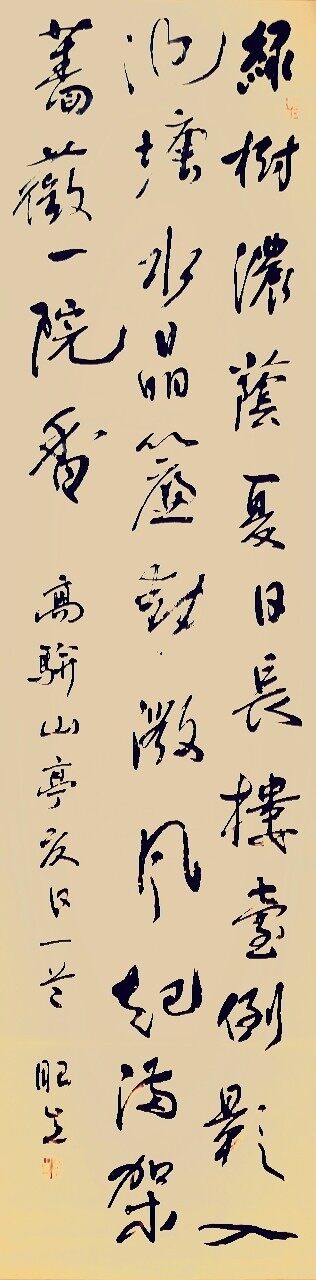 綠樹濃蔭夏日長樓臺倒影入
池塘水晶簾動微風起滿架
薔薇一院香 高駢山亭夏日一首